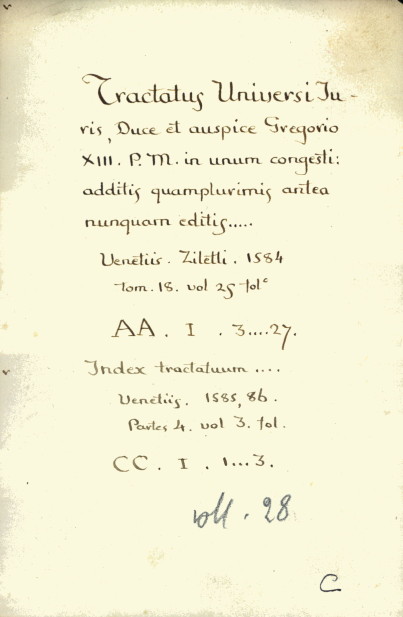 Tractatus Universi Ju-
ris, Duce et auspice Gregorio
XIII. P. M. in unum congesti:
additis quamplurimis antea
nunquam editis.....
Venetiis. Ziletti. 1584
tom. 18. vol 25 folº
AA. I. 3....27.
Index tractatuum ....
Venetiis. 1585, 86.
Partes 4. vol 3. fol.
CC. I. 1...3.
voll. 28
C